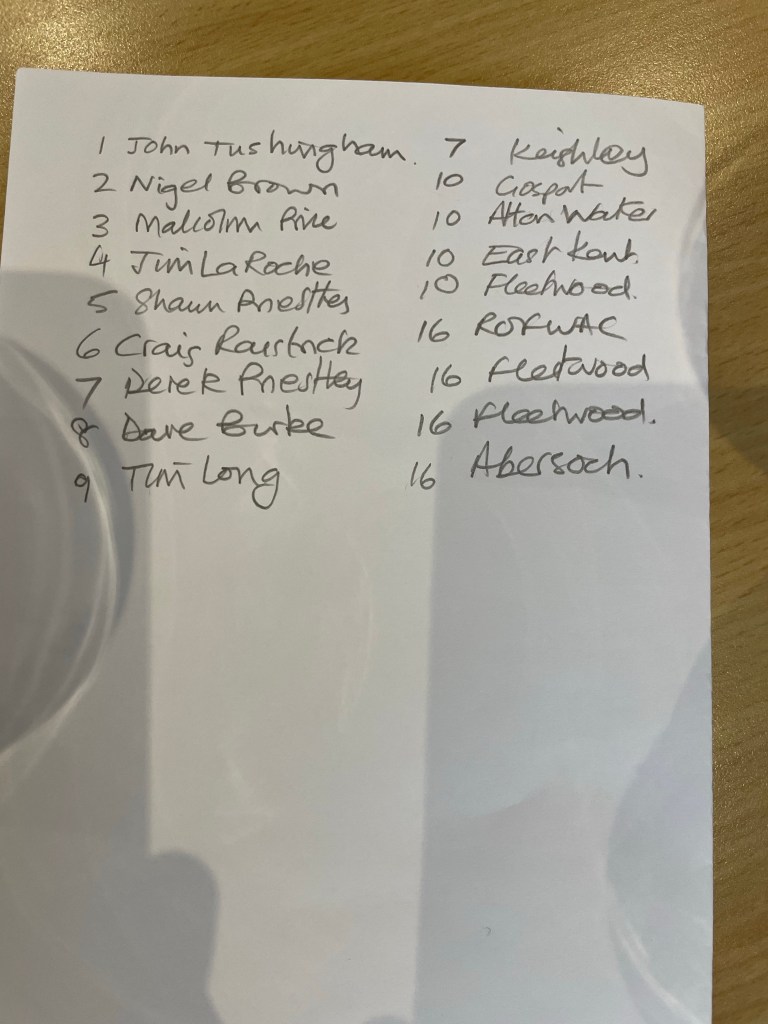 1 John Tushingham. 7 Keighley
2 Nigel Brown 10 Gosport
3 Malcolm 10 Alton Water
4 Jim LaRoche 10 East Kent.
5 Shaun Priestley 10 Fleetwood.
6 Craig Raistrick 16 ROFWAC
7 Derek Priestley 16 Fleetwood
8 Dave Burke 16 Fleetwood.
9 Tim Long 16 Abersoch.